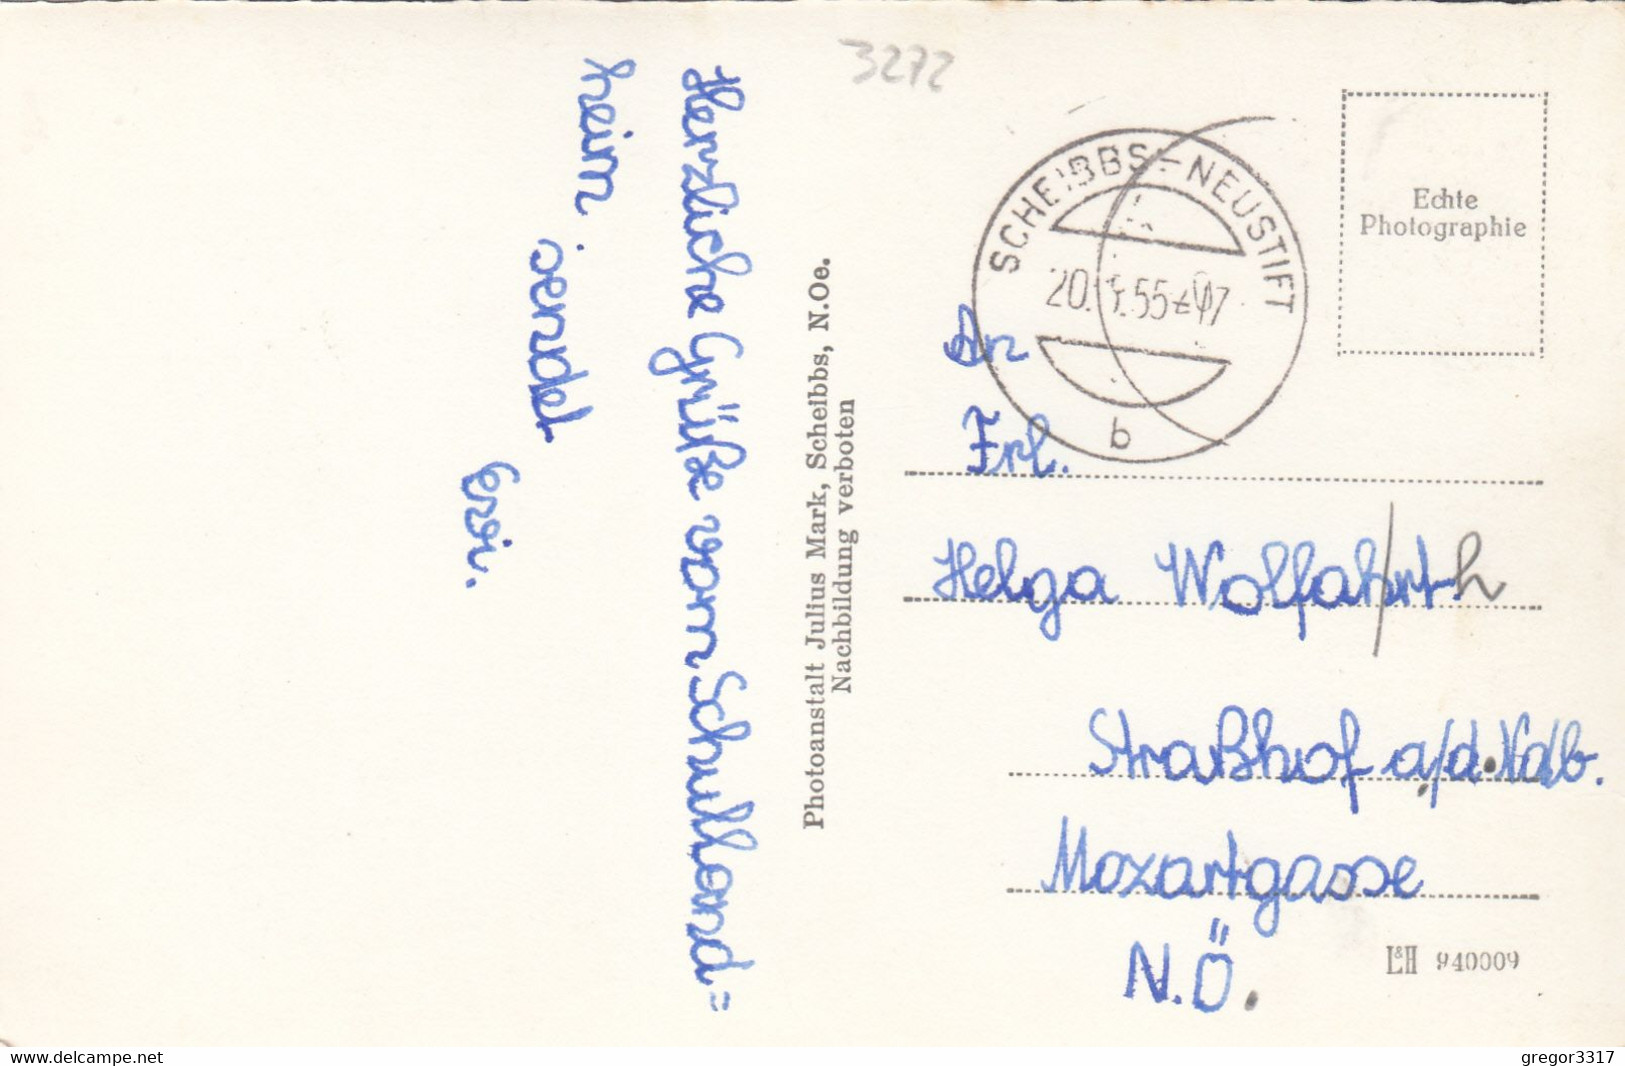 3272
Herzliche Grüße vom Schulland=
heim.
sendet
Evi.
Photoanstalt Julius Mark, Scheibbs, N.Oe.
Nachbildung verboten
SCHEIBBS-NEUSTIFT
b
Echte
Photographie
An
Frl.
Helga Wolfahrth
Straßhof a/d. Ndb.
Mozartgasse
N.Ö.
L&H 940009
www.delcampe.net
gregor3317